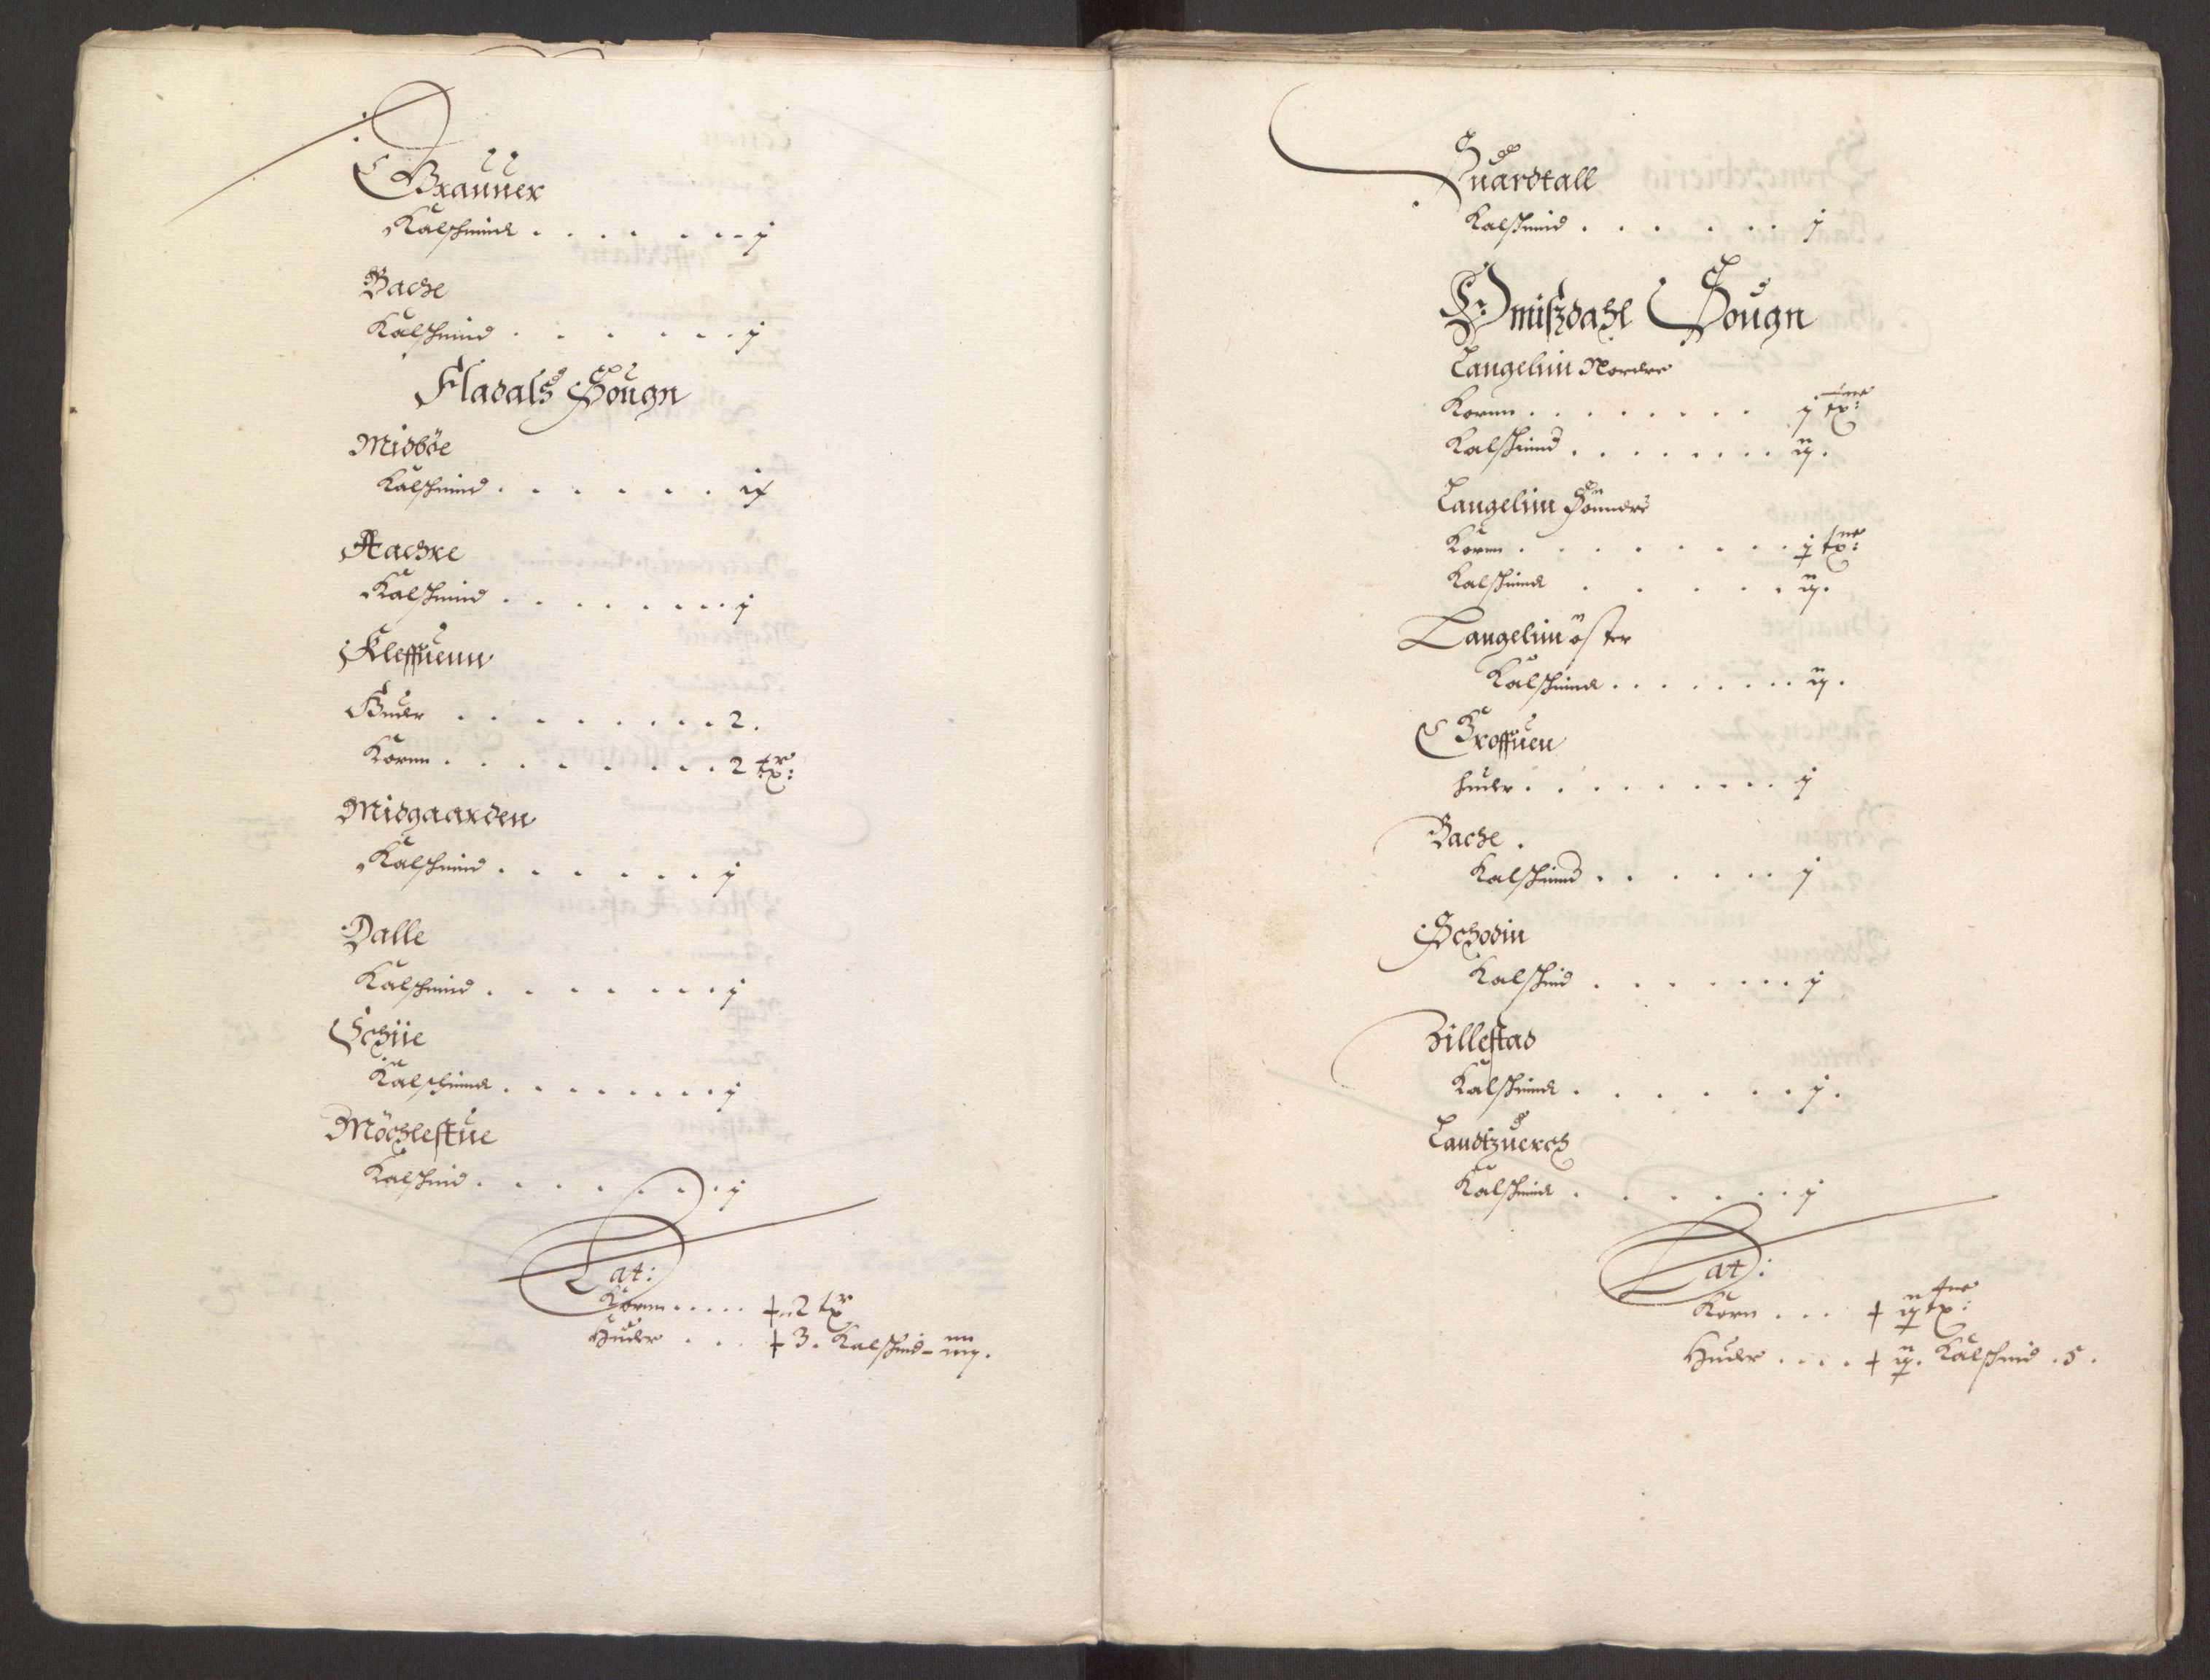 Grauuer
Kalschind . . . . . . j
Bache
Kalschind . . . . . . j
Fladals Sougn
Midböe
Kalschind . . . . . . ix
Aachre
Kalschind . . . . . . . j
Kleffuenn
Huder . . . . . . . . 2.
Kornn . . . . . . . . 2 tr:
Midgaarden
Kalschind . . . . . . j
Dalle
Kalschind . . . . . . . j
Schiie
Kalschind . . . . . . . j
Möchlestue
Kalschind . . . . . . . j
Lat:
Kornn . . . . . + 2 tr
Huder . . . + 3. Kalschind - iiij.
Suardtall
Kalskind . . . . . . j
Omißdahl Sougn
Langelim Nordre
Kornn . . . . . . . . j tr:
Kalskind . . . . . . . . ij.
Langelim Sönndre
Kornn . . . . . . . . j tr:
Kalskind . . . . . ij.
Langelim öster
Kalskind . . . . . . . ij.
Groffuen
huder . . . . . . . . . j
Bache .
Kalskind . . . . . . j
Schodin
Kalskind . . . . . . . j
Zillestad
Kalskind . . . . . . j.
Landtzuerch
Kalskind . . . . . . j
Lat:
Korn . . . + ij tr:
Huder . . . . + ij. Kalskind . 5 .